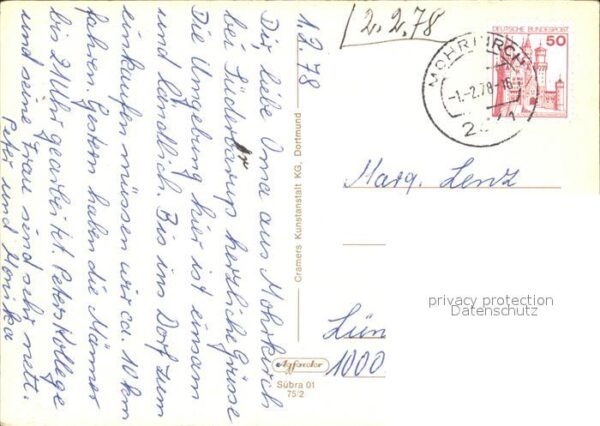 1.2.78
Dir liebe Oma aus Mohrkirch
bei Süderbarup herzliche Grüsse
Die Umgebung hier ist einsam
und ländlich. Bis ins Dorf zum
einkaufen müssen wir ca. 10 km
fahren. Gestern haben die Männer
bis 21 Uhr gearbeitet. Peters Kollege
und seine Frau sind sehr nett.
Peter und Monika
2.2.78
DEUTSCHE BUNDESPOST
50
MOHRKIRCH
-1.-2.78-16
Marg. Lenz
privacy protection
Datenschutz
Lün
1000
Cramers Kunstanstalt KG, Dortmund
Agfacolor
Sübra 01
75/2